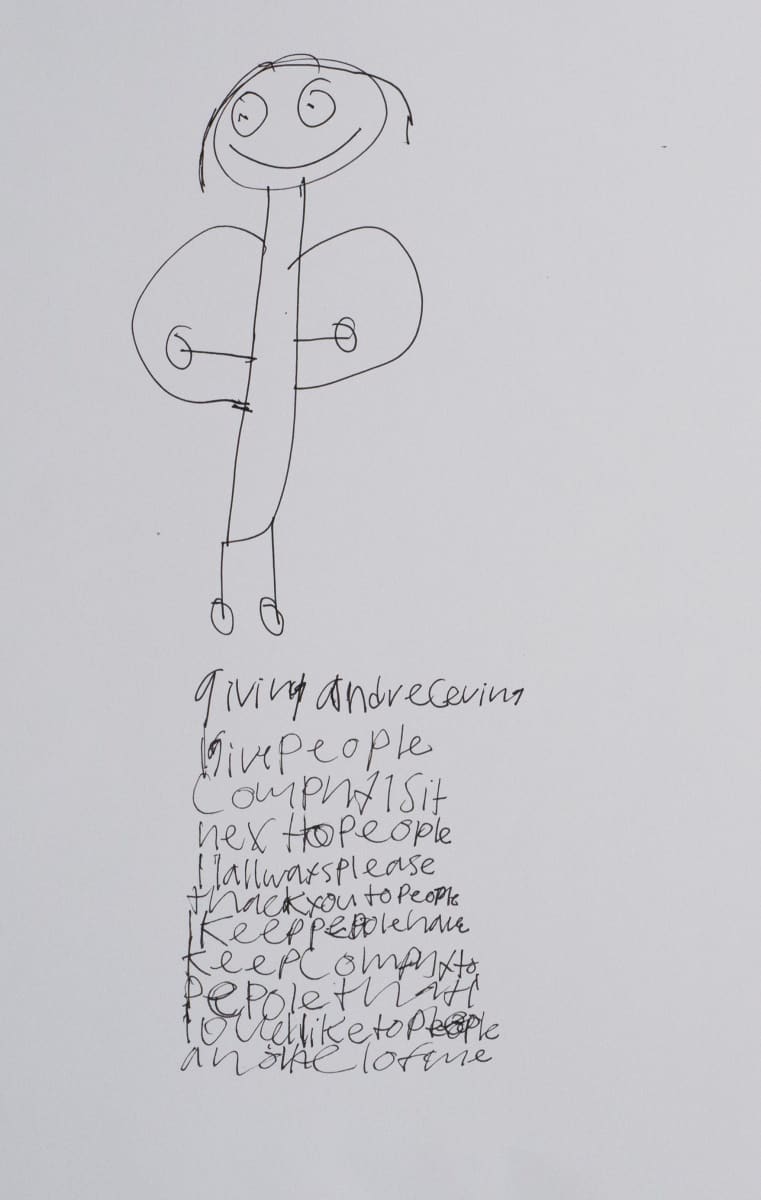 giving and receving
I give people
compny I sit
next to people
I allways please
thack you to people
I keep pepole have
keep compny to
pepole that I
love I like to people